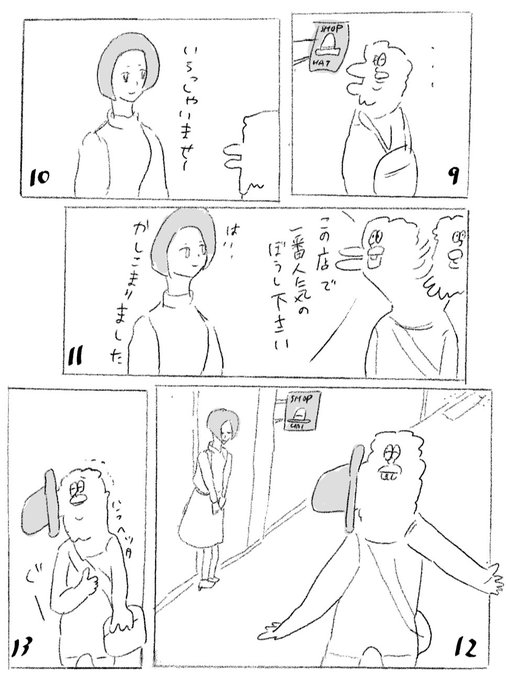 SHOP
HAT
・・・
9
いらっしゃいませ〜
10
この店で
一番人気の
ぼうし下さい
はい・
かしこまりました
11
SHOP
12
ぐー
13